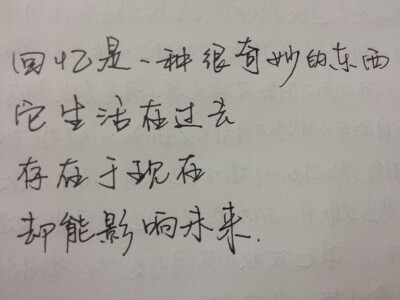 回忆是一种很奇妙的东西
它生活在过去
存在于现在
却能影响未来.